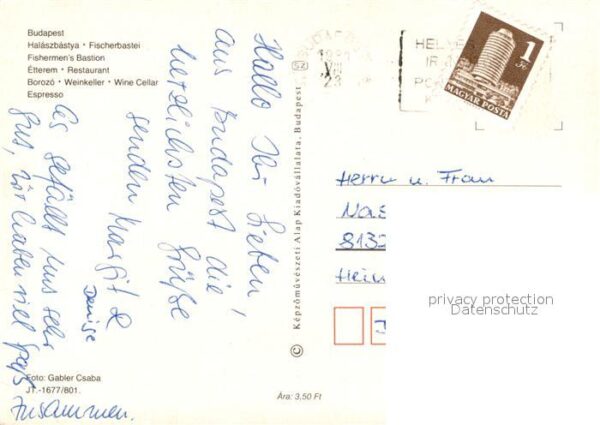 Budapest
Halászbástya • Fischerbastei
Fishermen's Bastion
Étterem • Restaurant
Borozó • Weinkeller • Wine Cellar
Espresso
Hallo Ihr Lieben,
aus Budapest die
herzlichsten Grüße
senden Margit &
Denise
Es gefällt uns sehr
gut, wir haben viel Spaß
zusammen.
Foto: Gabler Csaba
JT.-1677/801.
Ára: 3,50 Ft
© Képzőművészeti Alap Kiadóvállalata, Budapest
SZ
BUDAPEST
HELYES
1 Ft
MAGYAR POSTA
Herrn u. Frau
Nas
8132
Hein
privacy protection
Datenschutz